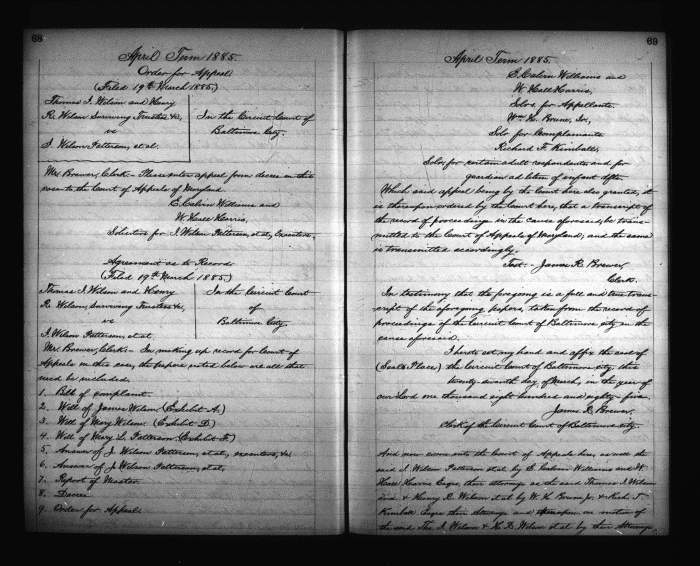 68
April Term 1885.
Order for Appeal
(Filed 19th March 1885.)
Thomas I. Wilson and Henry
R. Wilson Surviving Trustees &c,
vs
J. Wilson Patterson, et al.
In the Circuit Court of
Baltimore City.
Mr. Brewer, Clerk:- Please enter appeal from decree in this
case to the Court of Appeals of Maryland
E. Calvin Williams and
W. Hall Harris,
Solicitors for J. Wilson Patterson, et al, executors,
Agreement as to Record
(Filed 19th March 1885.)
Thomas I. Wilson and Henry
R. Wilson, Surviving Trustees &c,
vs
J. Wilson Patterson, et al
In the Circuit Court
of
Baltimore City.
Mr. Brewer, Clerk:- In making up record for Court of
Appeals in this case, the papers noted below are all that
need be included.
1. Bill of complaint.
2. Will of James Wilson (Exhibit A.)
3. Will of Mary Wilson. (Exhibit D)
4. Will of Mary L. Patterson (Exhibit F.)
5. Answer of J. Wilson Patterson, et al, executors, &c
6. Answer of J. Wilson Patterson, et al,
7. Report of Master
8. Decree
9. Order for Appeal
69
April Term 1885.
E. Calvin Williams and
W. Hall Harris,
Solrs for Appellants.
Wm K. Brune, Jr,
Solr for Complainants
Richard F. Kimball,
Solr for certain adult respondents and for
guardian ad litem of infant
Which said appeal being by the Court here also granted, it
is thereupon ordered by the Court here, that a transcript of
the record of proceedings in the cause aforesaid, be trans-
mitted to the Court of Appeals of Maryland; and the same
is transmitted accordingly.
Test:- James R. Brewer,
Clerk.
In testimony that the foregoing is a full and true trans-
cript of the aforegoing papers, taken from the record of
proceedings of the Circuit Court of Baltimore city in the
cause aforesaid.
I hereto set my hand and affix the seal of
(Seal's Place) the Circuit Court of Baltimore city this
twenty seventh day of March, in the year of
our Lord one thousand eight hundred and eighty five.
James R. Brewer.
Clerk of the Circuit Court of Baltimore city.
And now come into the Court of Appeals here, as well the
said J. Wilson Patterson et al by E. Calvin Williams and W.
Hall Harris Esqrs, their attorneys as the said Thomas I. Wilson
and & Henry R. Wilson et al by W. K. Brune Jr. & Rich. F.
Kimball Esqrs their Attorneys and on motion of
the said Tho I. Wilson & H. R. Wilson et al by their Attorneys